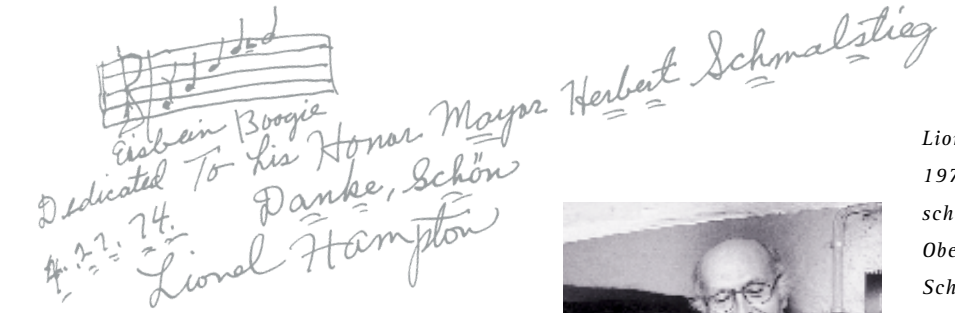 Eisbein Boogie
Dedicated To his Honor Mayor Herbert Schmalstieg
Danke, Schön
4.27.74.
Lionel Hampton
Lion
197
sch
Obe
Sch